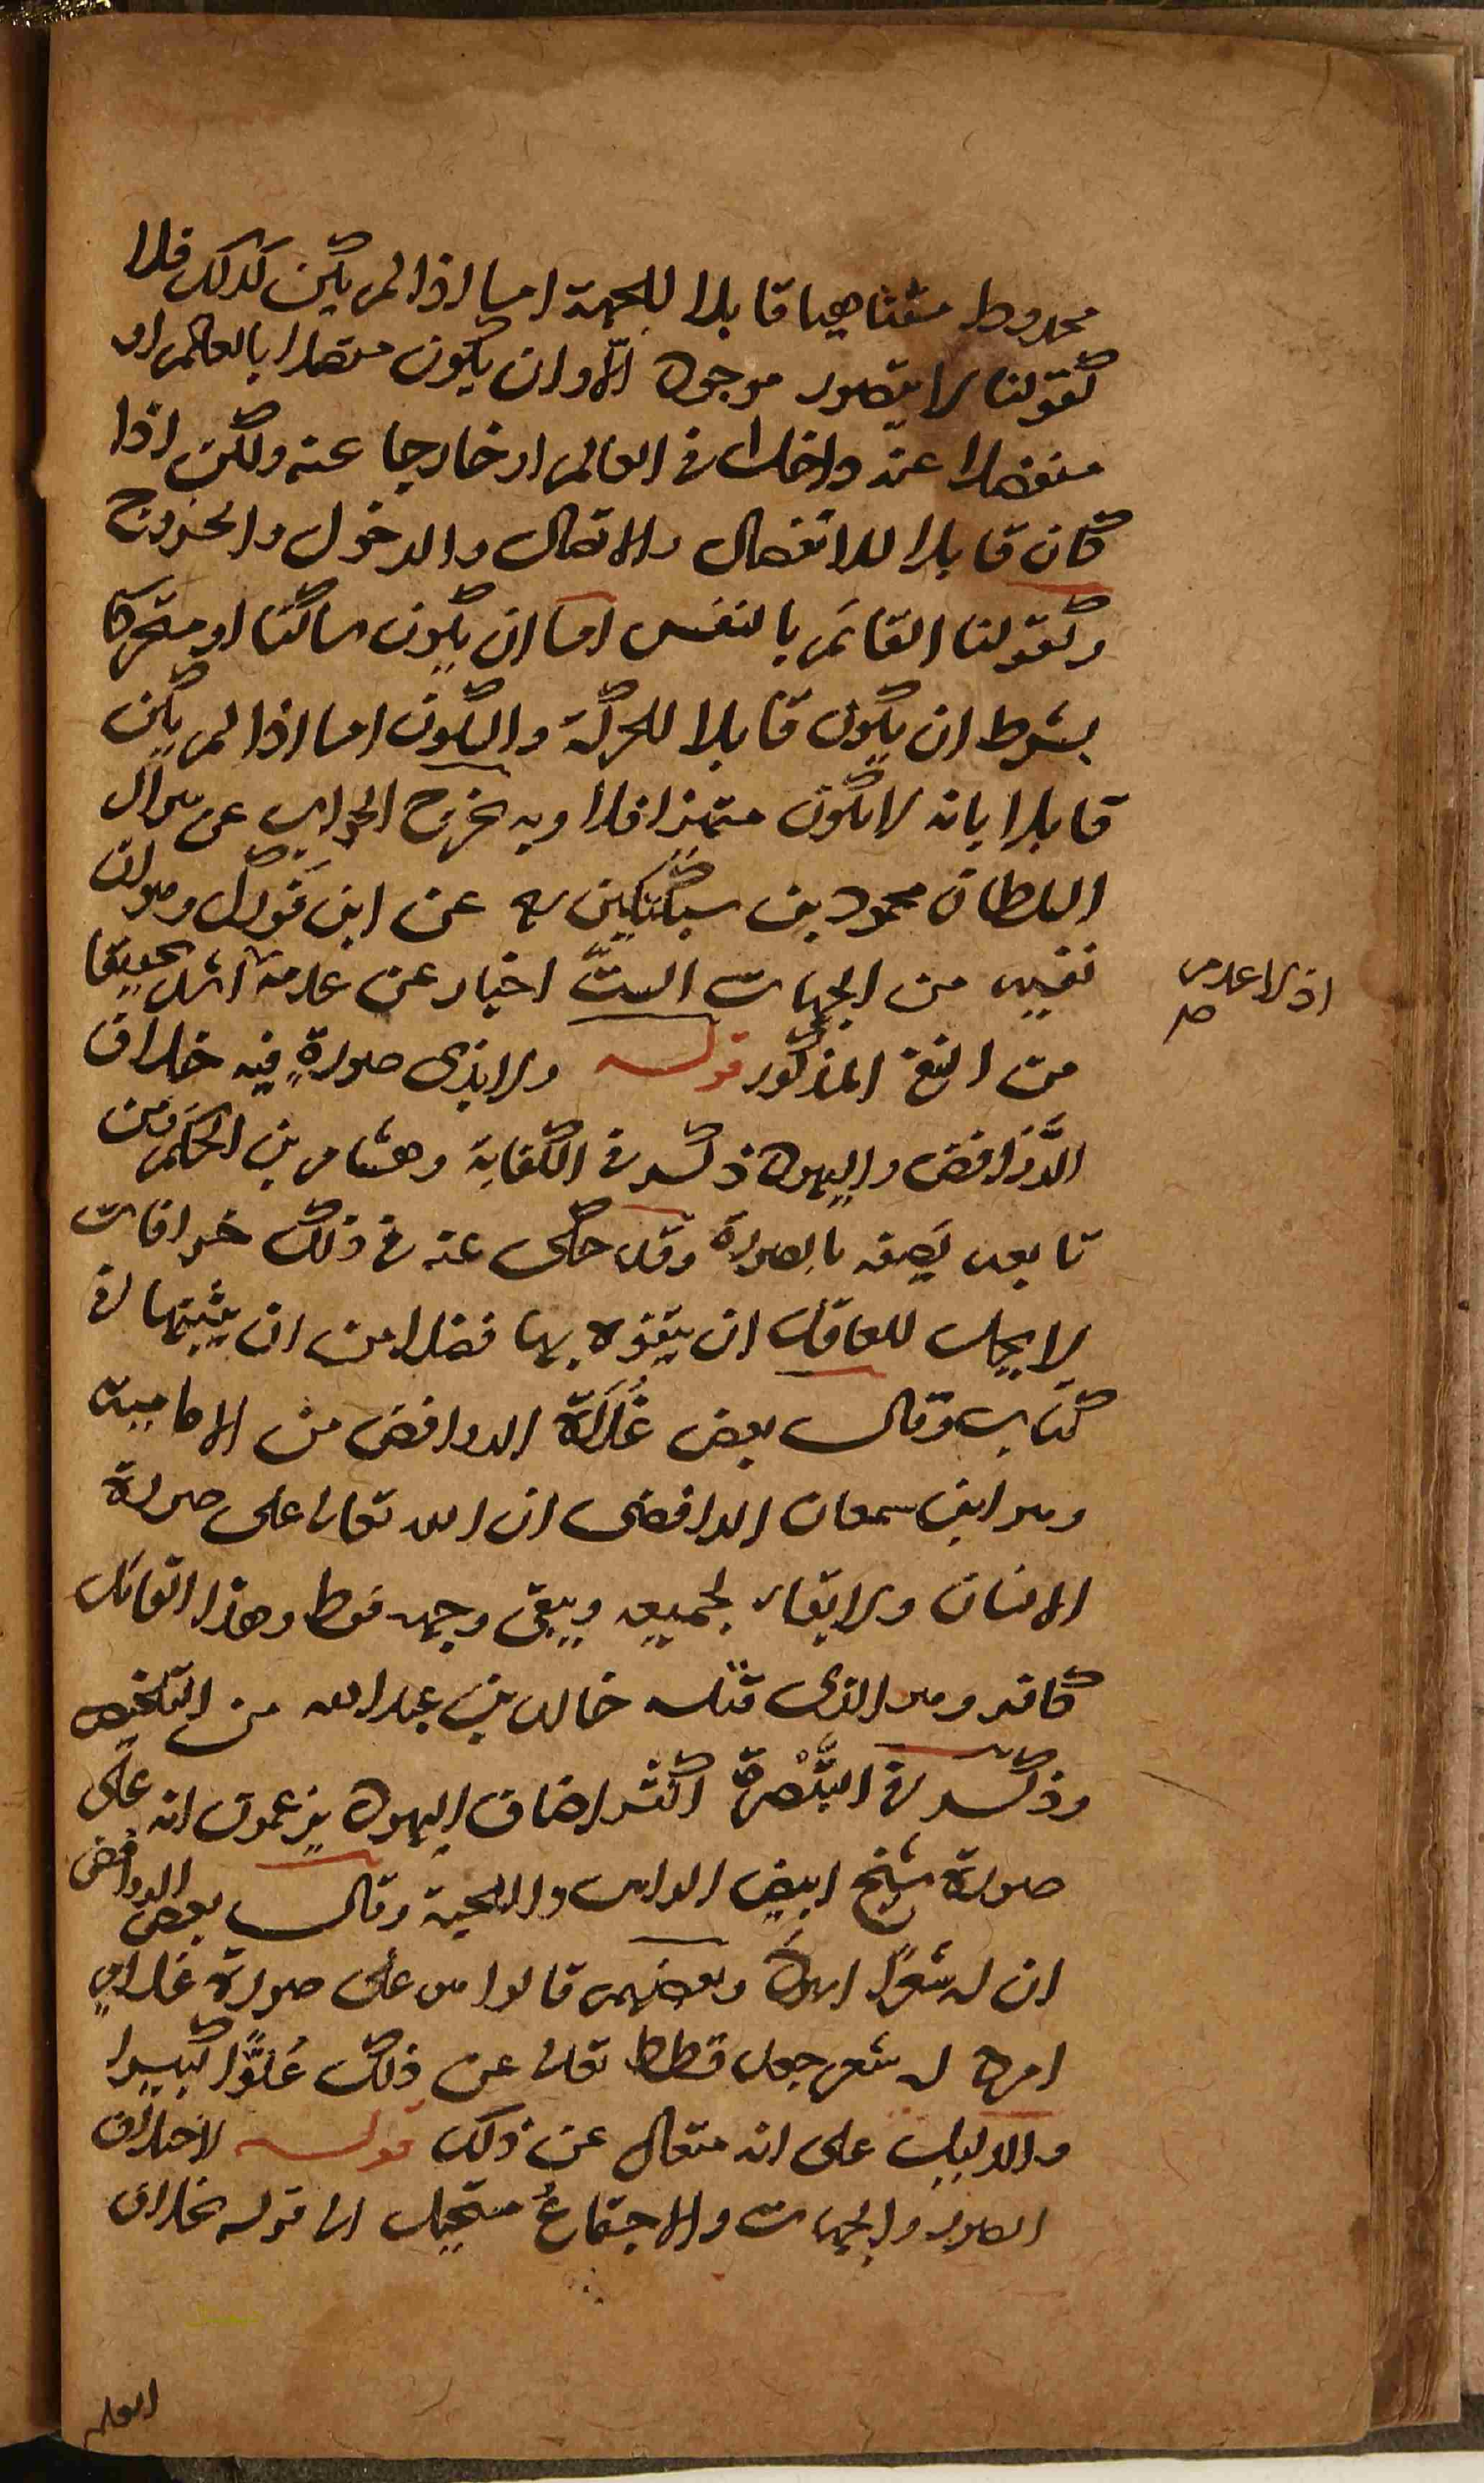 محدودا متناهيا قابلا للجهة اما اذا لم يكن كذلك فلا
كقولنا لا يتصور موجود الا وان يكون متصلا بالعالم او
منفصلا عنه داخلا في العالم او خارجا عنه ولكن اذا
كان قابلا للانفصال والاتصال والدخول والخروج
وكقولنا القائم بالنفس اما ان يكون ساكنا او متحركا
بشرط ان يكون قابلا للحركة والسكون اما اذا لم يكن
قابلا بانه لا يكون متحيزا فلا وبه يخرج الجواب عن سوال
السلطان محمود بن سبكتكين عن ابن فورك وهو ان
نفيه من الجهات الست اخبار عن عدمه اشد تحقيقا
اذ لا عدم
صح
من النفي المذكور قوله ولا بذي صورة فيه خلاف
الروافض واليهود ذكر في الكفاية وهشام بن الحكم ومن
تابعه يصفه بالصورة وقد حكى عنه في ذلك خرافات
لا يحل للعاقل ان يتفوه بها فضلا من ان يثبتها في
كتاب وقال بعض غلاة الروافض من الامامية
وهو ابن سمعان الرافضى ان الله تعالى على صورة
الانسان ولا بقاء لجميعه ويبقى وجهه فقط وهذا القائل
كافر وهو الذى قتله خالد بن عبد الله من التلخيص
وذكر في التبصرة اكثر اصناف اليهود يزعمون انه على
صورة شيخ ابيض الراس واللحية وقال بعض الروافض
ان له شعرا اسود وبعضهم قالوا هو على صورة غلام
امرد له شعر جعد قطط تعالى عن ذلك علوا كبيرا
والدليل على انه متعال عن ذلك قوله لاختلاف
الصور والجهات والاجتماع مستحيل الى قوله بخلاف
العلم